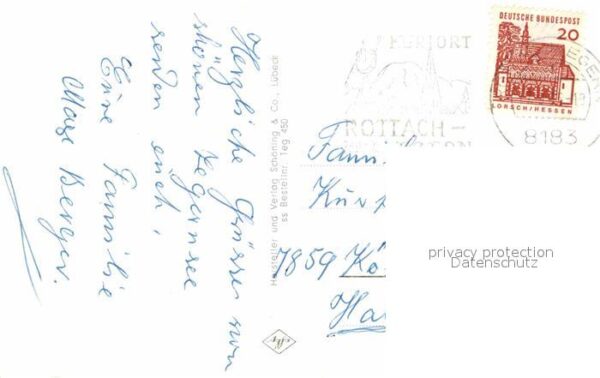 Herzliche Grüsse vom
schönen Tegernsee
senden euch,
Eure Familie
Berger.
Hersteller und Verlag Schöning & Co., Lübeck
ss Bestellnr. Teg 450
KURORT
ROTTACH-
DEUTSCHE BUNDESPOST
20
LORSCH/HESSEN
8183
Fam.
Kur
7859 Kö
Ha
privacy protection
Datenschutz